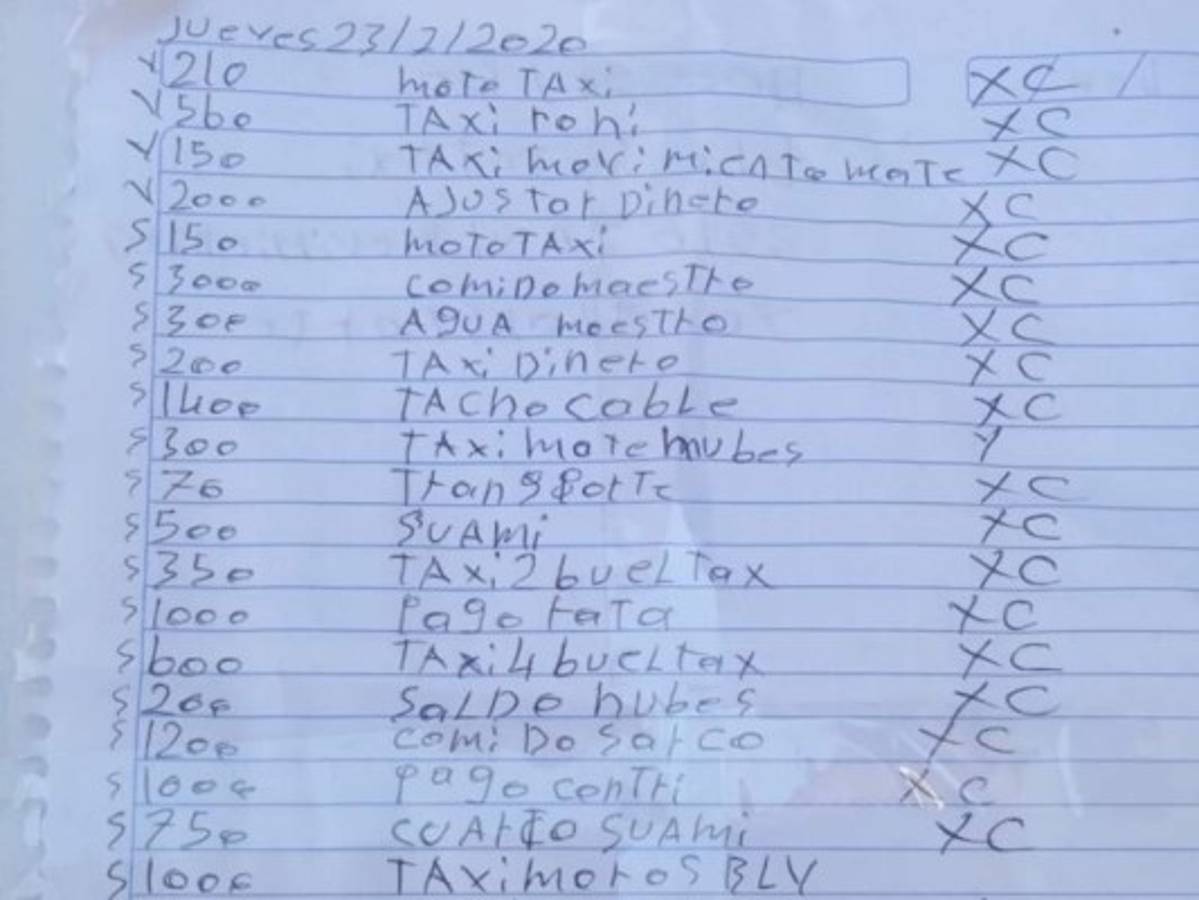 Jueves 23/2/2020
V 210 moto TAxi XC
V 560 TAxi rohi XC
V 150 TAxi movimiento mate XC
V 2000 AJUSTar Dinero XC
S 150 moto TAxi XC
S 3000 comiDa maesTro XC
S 300 AgUA maesTro XC
S 200 TAxi Dinero XC
S 1400 TAcho cabLe XC
S 300 TAxi mate nubes Y
S 70 TransporTe XC
S 500 SUAmi XC
S 350 TAxi 2 buelTax XC
S 1000 Pago raTa XC
S 600 TAxi 4 bueLtax XC
S 200 SaLDo nubes XC
S 1200 comiDa sarco XC
S 1000 pago conTri XC
S 750 CUArTo SUAmi XC
S 1000 TAxi motos BLV